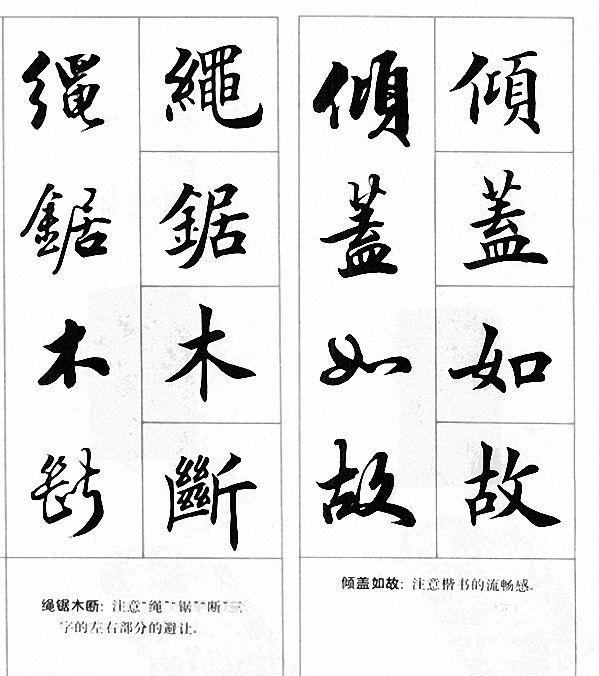 傾蓋如故
傾蓋如故
倾盖如故: 注意楷书的流畅感。
繩鋸木斷
繩鋸木斷
绳锯木断: 注意“绳”“锯”“断”三
字的左右部分的避让。